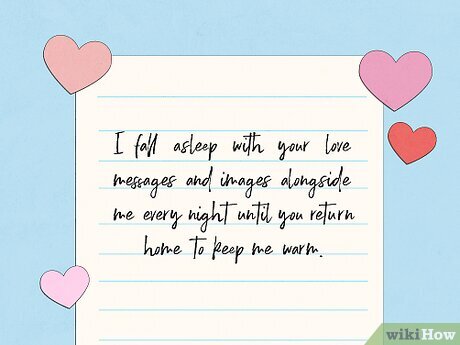 I fall asleep with your love
messages and images alongside
me every night until you return
home to keep me warm.
wikiHow